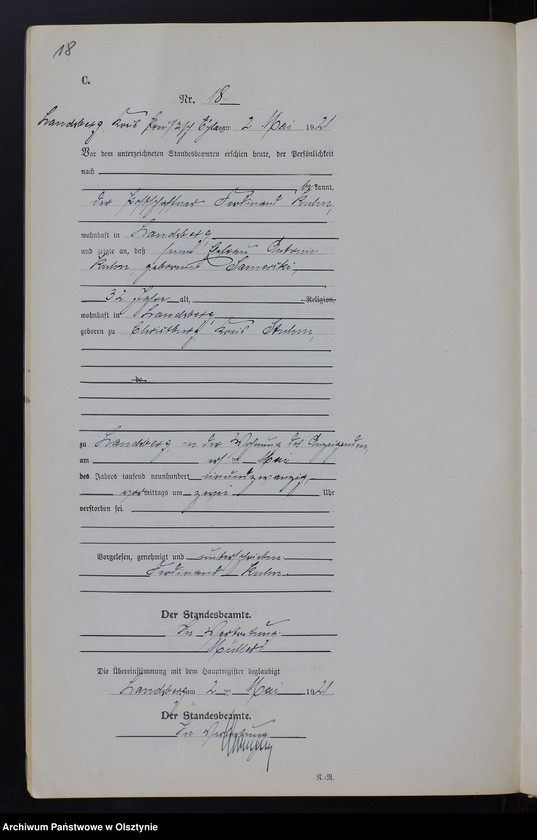 18
C.
Nr. 18.
Landsberg, Kreis Preußisch Eylau am 2. Mai 1921
Vor dem unterzeichneten Standesbeamten erschien heute, der Persönlichkeit
nach
bekannt,
der Postschaffner Ferdinand Kuhn,
wohnhaft in Landsberg,
und zeigte an, daß seine Ehefrau
Kuhn geborene
32 Jahre alt, Religion,
wohnhaft in Landsberg,
geboren zu Christburg, Kreis Stuhm,
zu Landsberg, in der Wohnung des Anzeigenden,
am Mai
des Jahres tausend neunhundert einundzwanzig,
vormittags um zwei Uhr
verstorben sei.
Vorgelesen, genehmigt und unterschrieben
Ferdinand Kuhn.
Der Standesbeamte.
In Vertretung
Müller
Die Übereinstimmung mit dem Hauptregister beglaubigt
Landsberg am 2. Mai 1921
Der Standesbeamte.
In Vertretung
K.-R.
Archiwum Państwowe w Olsztynie